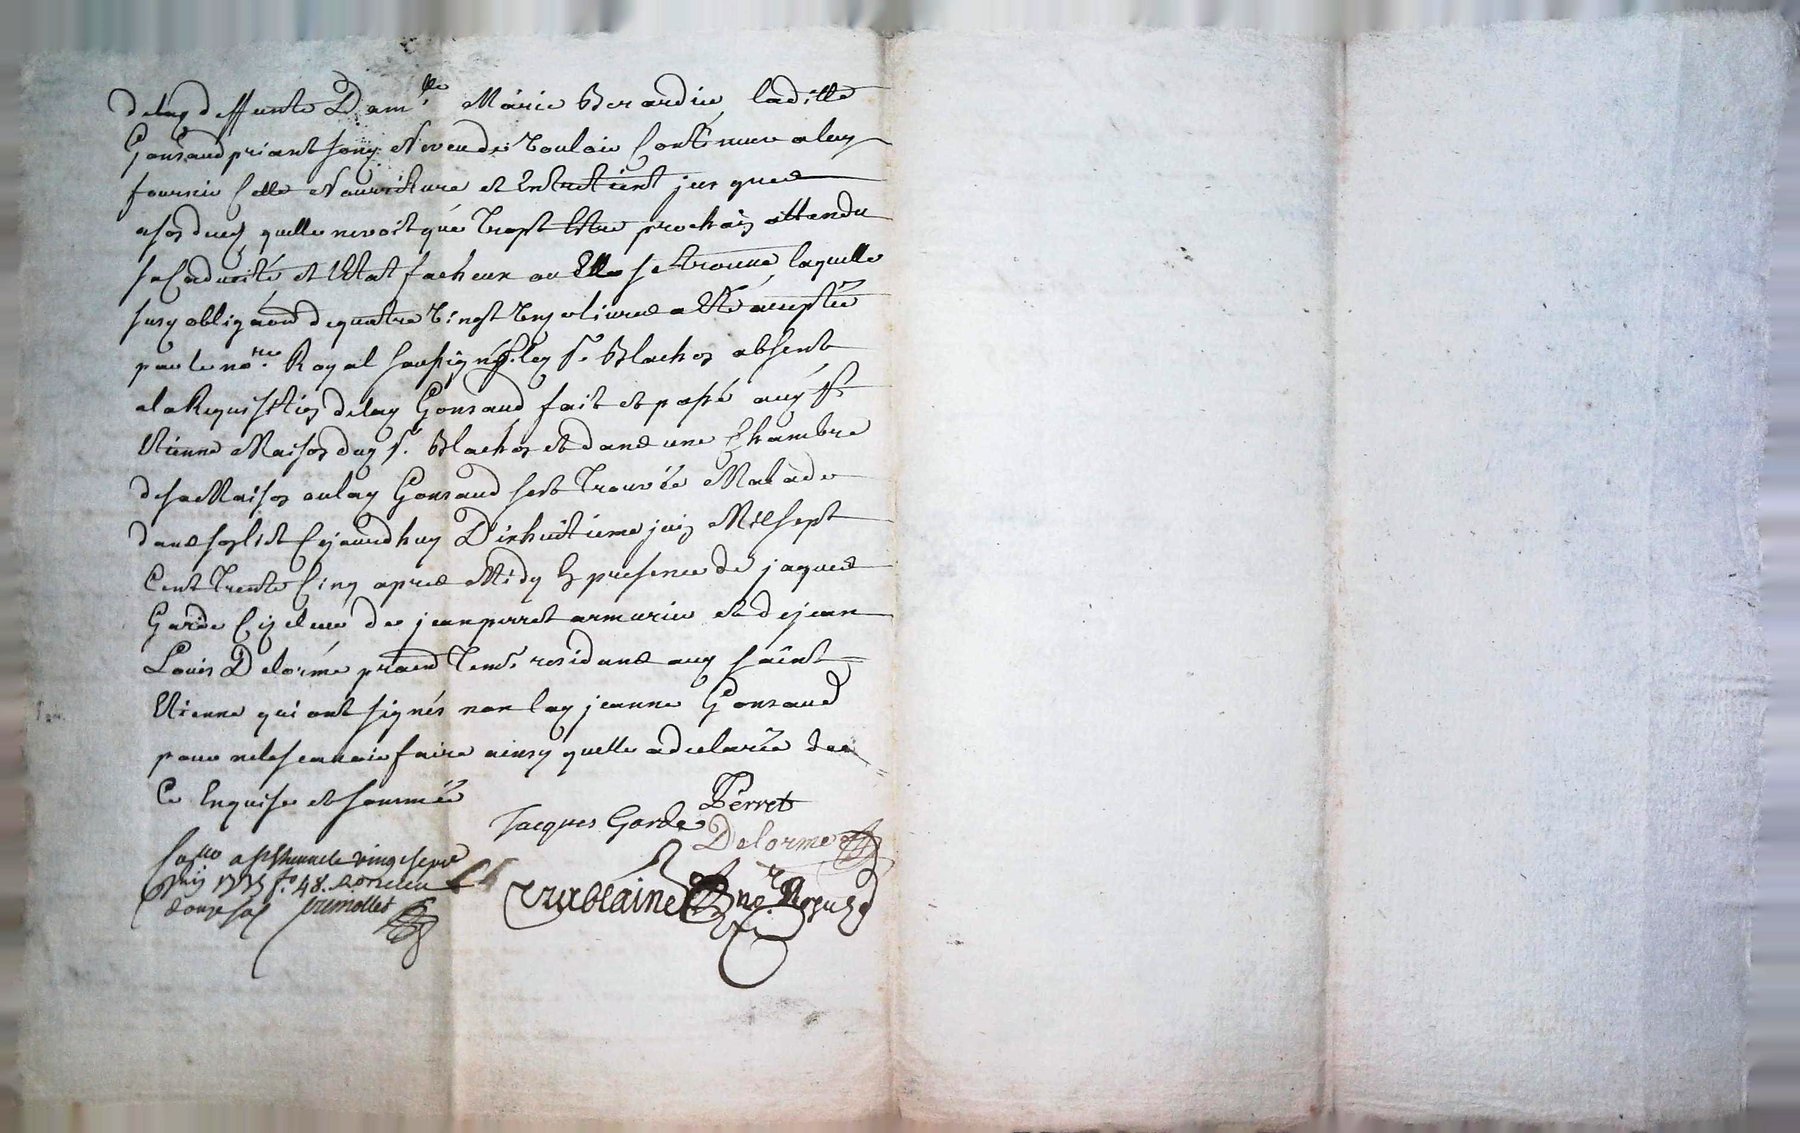 delad deffunte Dam.lle Marie Berardier laditte
Gonraud priant sond Neveu de vouloir Continuer a luy
fournir Cette Nourriture et Entretient jusques
a son decez quelle ne voit que trop Estre prochain attendu
sa Caducité et l'Etat facheux ou Elle se trouve laquelle
susd obligaon de quatre vingt livres a Eté acceptée
par le no.re Royal soussigné led sr. Blachon absent
a la Requisition delad Gonraud fait et passé aud St
Etienne Maison dud sr. Blachon et dans une Chambre
de sa Maison ou lad Gonraud sest trouvée Malade
dans son lict Cejourdhuy Dixhuitieme juin Mil sept
Cent trente Cinq apres Midy En presence de jaques
Garde Cizeleur de jean perret armurier et de jean
Louis Delorme praticien tems. residans aud saint
Etienne qui ont signés non lad jeanne Gonraud
pour ne le scavoir faire ainsy quelle a declarée de
Ce Enquise et sommée
Perret
Jacques Garde
Delorme
Con.llo a St Estienne le vingt sept
juin 1735 fo. 48. Reçu
douze sols
no.re Royal